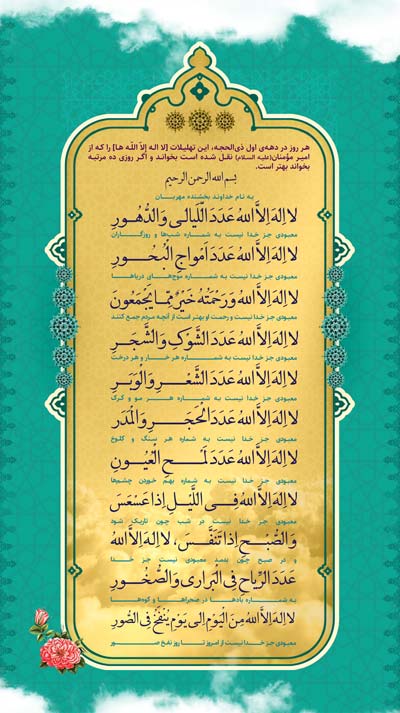 هر روز در دهه‌ی اول ذی‌الحجه، این تهلیلات [لا اله إلاّ اللّه ها] را که از
امیر مؤمنان(علیه السلام) نقل شده است بخواند و اگر روزی ده مرتبه
بخواند بهتر است.
بسم الله الرحمن الرحیم
به نام خداوند بخشنده مهربان
لا اِلهَ اِلاَّ اللهُ عَدَدَ اللَّیالی وَالدُّهُورِ
معبودی جز خدا نیست به شماره شب‌ها و روزگاران
لا اِلهَ اِلاَّ اللهُ عَدَدَ اَمْواجِ الْبُحُورِ
معبودی جز خدا نیست به شماره موج‌های دریاها
لا اِلهَ اِلاَّ اللهُ وَ رَحْمَتُهُ خَیْرٌ مِمّا یَجْمَعُونَ
معبودی جز خدا نیست و رحمت او بهتر است از آنچه مردم جمع کنند
لا اِلهَ اِلاَّ اللهُ عَدَدَ الشَّوْکِ وَالشَّجَرِ
معبودی جز خدا نیست به شماره هر خار و هر درخت
لا اِلهَ اِلاَّ اللهُ عَدَدَ الشَّعْرِ وَالْوَبَرِ
معبودی جز خدا نیست به شماره هر مو و کرک
لا اِلهَ اِلاَّ اللهُ عَدَدَ الْحَجَرِ وَالْمَدَرِ
معبودی جز خدا نیست به شماره هر سنگ و کلوخ
لا اِلهَ اِلاَّ اللهُ عَدَدَ لَمْحِ الْعُیُونِ
معبودی جز خدا نیست به شماره بهم خوردن چشم‌ها
لا اِلهَ اِلاَّ اللهُ فِی اللَّیْلِ اِذا عَسْعَسَ
معبودی جز خدا نیست در شب چون تاریک شود
وَالصُّبْحِ اِذا تَنَفَّسَ، لا اِلهَ اِلاَّ اللهُ
و در صبح چون بدمد معبودی نیست جز خدا
عَدَدَ الرِّیاحِ فِی الْبَراری وَالصُّخُورِ
به شماره بادها در صحراها و کوه‌ها
لا اِلهَ اِلاَّ اللهُ مِنَ الْیَوْمِ اِلی یَوْمِ یُنْفَخُ فِی الصُّورِ
معبودی جز خدا نیست از امروز تا روز نفخ صور